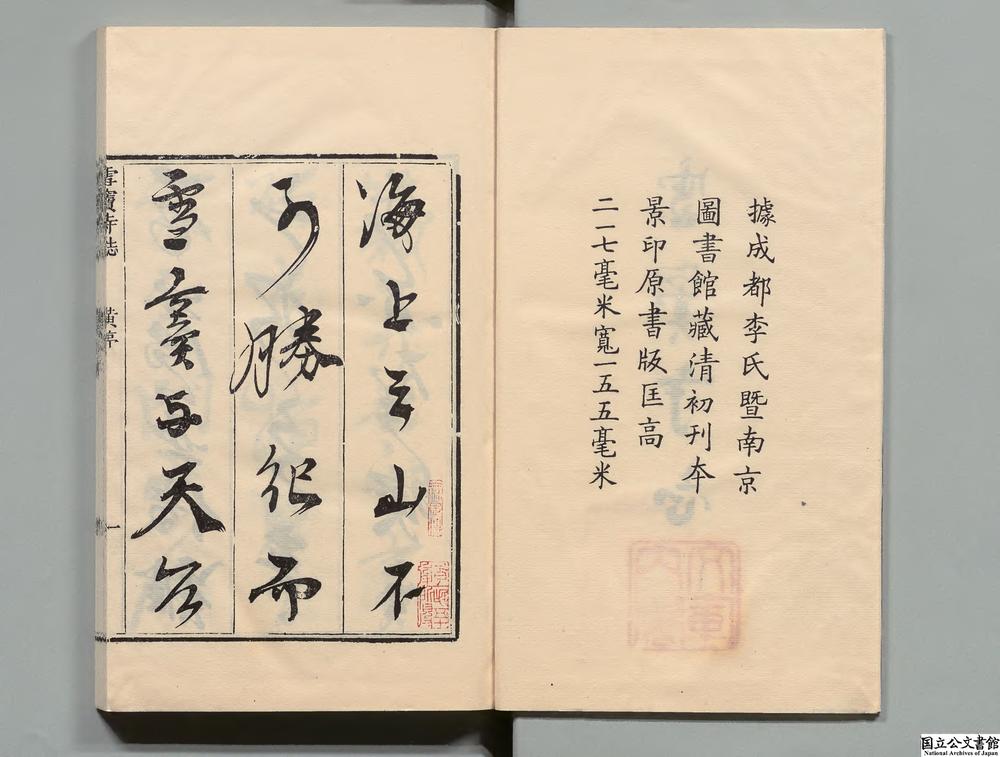 據成都李氏暨南京
圖書館藏清初刊本
景印原書版匡高
二一七毫米寬一五五毫米
海上之山不
可勝紀而
雪竇與天台
雪竇寺誌
黃序
一
国立公文書館
National Archives of Japan